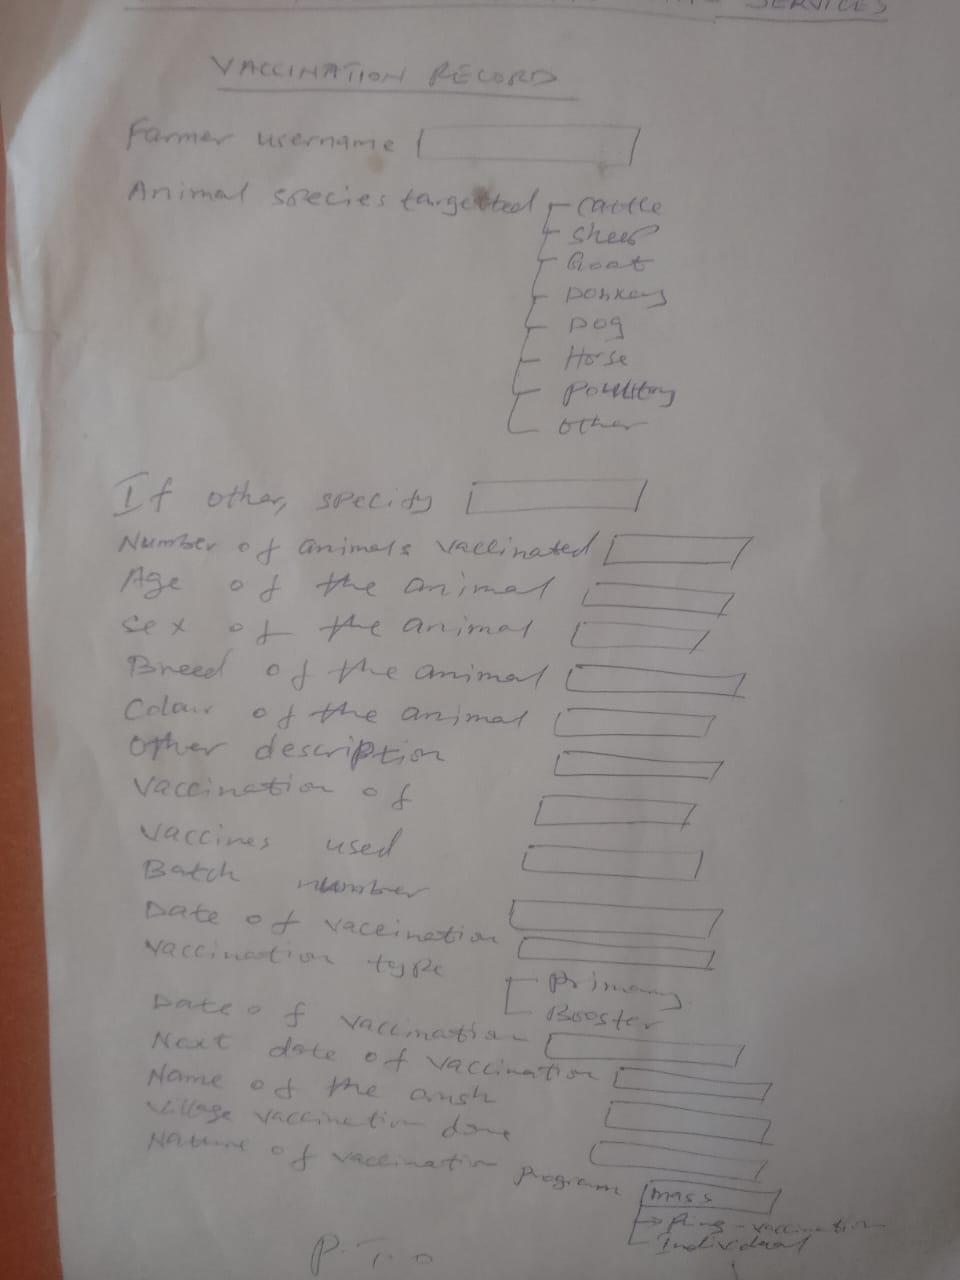 SERVICES
VACCINATION RECORD
Farmer username
Animal species targetted
cattle
sheep
Goat
Donkey
Dog
Horse
poultry
other
If other, specify
Number of animals vaccinated
Age of the animal
Sex of the animal
Breed of the animal
Colour of the animal
Other description
Vaccination of
vaccines used
Batch number
Date of vaccination
Vaccination type
primary
Booster
Date of vaccination
Next date of vaccination
Name of the
village vaccination done
Nature of vaccination program
mass
Ring-vaccination
Individual
P.T.O